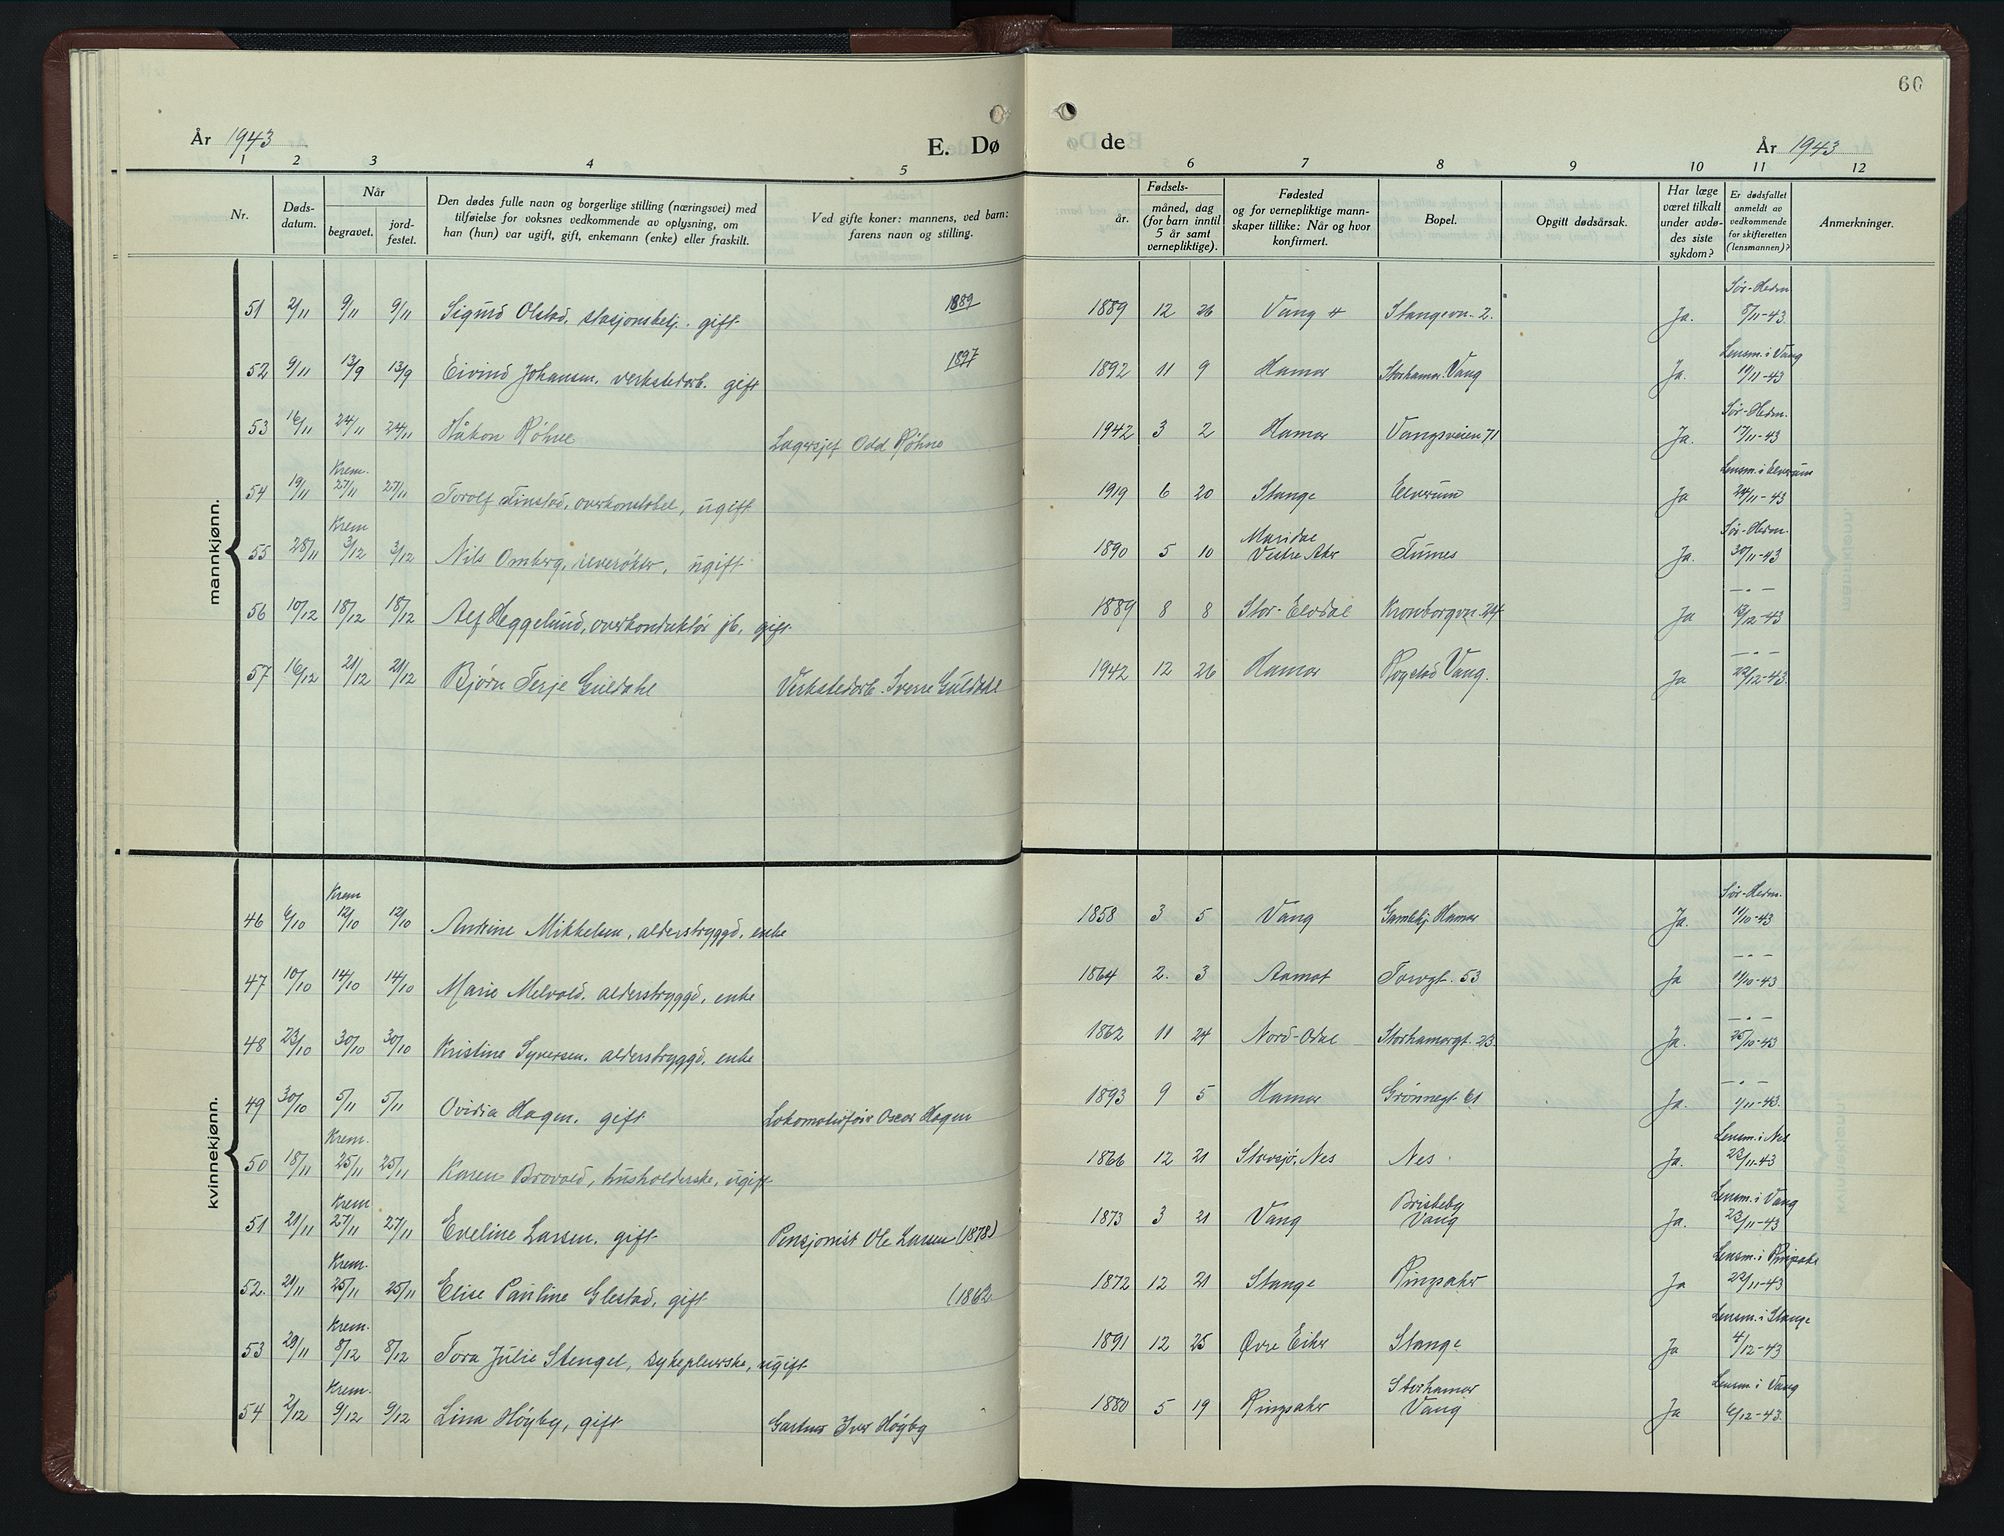 60
År 1943
E. Dø
de
År 1943
1 2 3 4 5 6 7 8 9 10 11 12
Nr.
Døds-
datum.
Når
begravet.
jord-
festet.
Den dødes fulle navn og borgerlige stilling (næringsvei) med
tilføielse for voksnes vedkommende av oplysning, om
han (hun) var ugift, gift, enkemann (enke) eller fraskilt.
Ved gifte koner: mannens, ved barn:
farens navn og stilling.
Fødsels-
år.
måned, dag
(for barn inntil
5 år samt
vernepliktige).
Fødested
og for vernepliktige mann-
skaper tillike: Når og hvor
konfirmert.
Bopel.
Opgitt dødsårsak.
Har læge
været tilkalt
under avdø-
des siste
sykdom?
Er dødsfallet
anmeldt av
vedkommende
for skifteretten
(lensmannen)?
Anmerkninger.
mannkjønn.
1889 Sør-Hedm
51 2/11 9/11 9/11 Sigurd Olstad, stasjonsbetj. gift 1889 12 26 Vang Stangevn. 2. Ja. 8/11-43.
1897 Lensm. i Vang
52 9/11 13/9 13/9 Eivind Johansen, verkstedarb. gift 1892 11 9 Hamar Storhamar Vang Ja. 11/11-43
Sør-Hedm.
53 16/11 24/11 24/11 Håkon Røhne Lagersjef Odd Røhne 1942 3 2 Hamar Vangsveien 71 Ja. 17/11-43
Krem. Lensm. i Elverum
54 19/11 27/11 27/11 Torolf Finstad, overkonstabel, ugift 1919 6 20 Stange Elverum Ja 24/11-43
Krem Maridal Sør-Hedm.
55 28/11 3/12 3/12 Nils Omberg, reverøkter, ugift 1890 5 10 Vestre Aker Furnes Ja. 30/11-43
— . —
56 10/12 18/12 18/12 Alf Heggelund, overkonduktør jb, gift 1889 8 8 Stor-Elvdal Kronborgvn. 24 Ja 13/12-43
— . —
57 16/12 21/12 21/12 Bjørn Terje Guldahl Verkstedarb. Sverre Guldahl 1942 12 26 Hamar Rogstad Vang. Ja 22/12-43.
kvinnekjønn.
Krem Sør-Hedm.
46 6/10 12/10 12/10 Andrine Mikkelsen, alderstrygd, enke 1858 3 5 Vang Gamlehj Hamar Ja. 11/10-43
— . —
47 10/10 14/10 14/10 Marie Melvold, alderstrygd, enke 1864 2. 3 Aamot Torvgt. 53 Ja 11/10-43
— . —
48 23/10 30/10 30/10 Kristine Syversen, alderstrygd, enke 1862 11 24 Nord-Odal Storhamargt. 23 Ja. 25/10-43
— . —
49 30/10 5/11 5/11 Ovidia Hagen, gift Lokomotivfører Oscar Hagen 1893 9 5 Hamar Grønnegt 61 Ja. 1/11-43.
Krem. Lensm. i Nes
50 18/11 25/11 25/11 Karen Brovold, husholderske, ugift 1866 12 21 Stavsjø, Nes Nes Ja. 23/11-43
Krem Brisheby Lensm. i Vang
51 21/11 27/11 27/11 Eveline Larsen, gift Pensjonist Ole Larsen (1878) 1873 3 21 Vang Vang Ja. 23/11-43
Krem. Lensm. i Ringsaker
52. 21/11 25/11 25/11 Elise Pauline Glestad, gift (1862 1872 12 21 Stange Ringsaker Ja 22/11-43
Krem. Lensm. i Stange
53 29/11 8/12 8/12 Tora Julie Stengel, sykepleierske, ugift 1891 12 25 Øvre Eiker Stange Ja 4/12-43
Krem. Storhamar Lensm. i Vang
54 2/12 9/12 9/12 Lina Høyby, gift Gartner Iver Høyby 1880 5 19 Ringsaker Vang Ja 6/12-43.